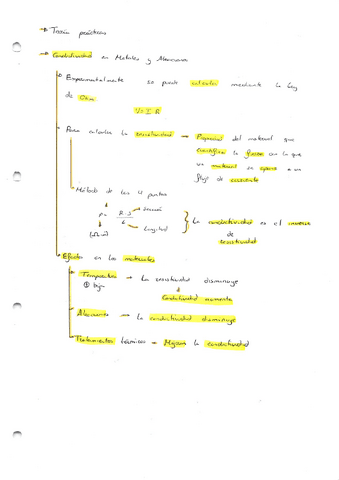 → Teoría prácticas
→ Conductividad en Metales y Aleaciones
Experimentalmente se puede calcular mediante la ley
de Ohm
V = I · R
Para calcular la resistividad → Propiedad del material que
cuantifica la fuerza con la que
un material se opone a un
flujo de corriente
Método de los 4 puntos
ρ = R·S / L
Sección
Longitud
(Ω·m)
La conductividad es el inverso
de
resistividad
Efectos en los materiales
Temperatura → La resistividad disminuye
baja
Conductividad aumenta
Aleaciones → La conductividad disminuye
Tratamientos térmicos → Mejora la conductividad